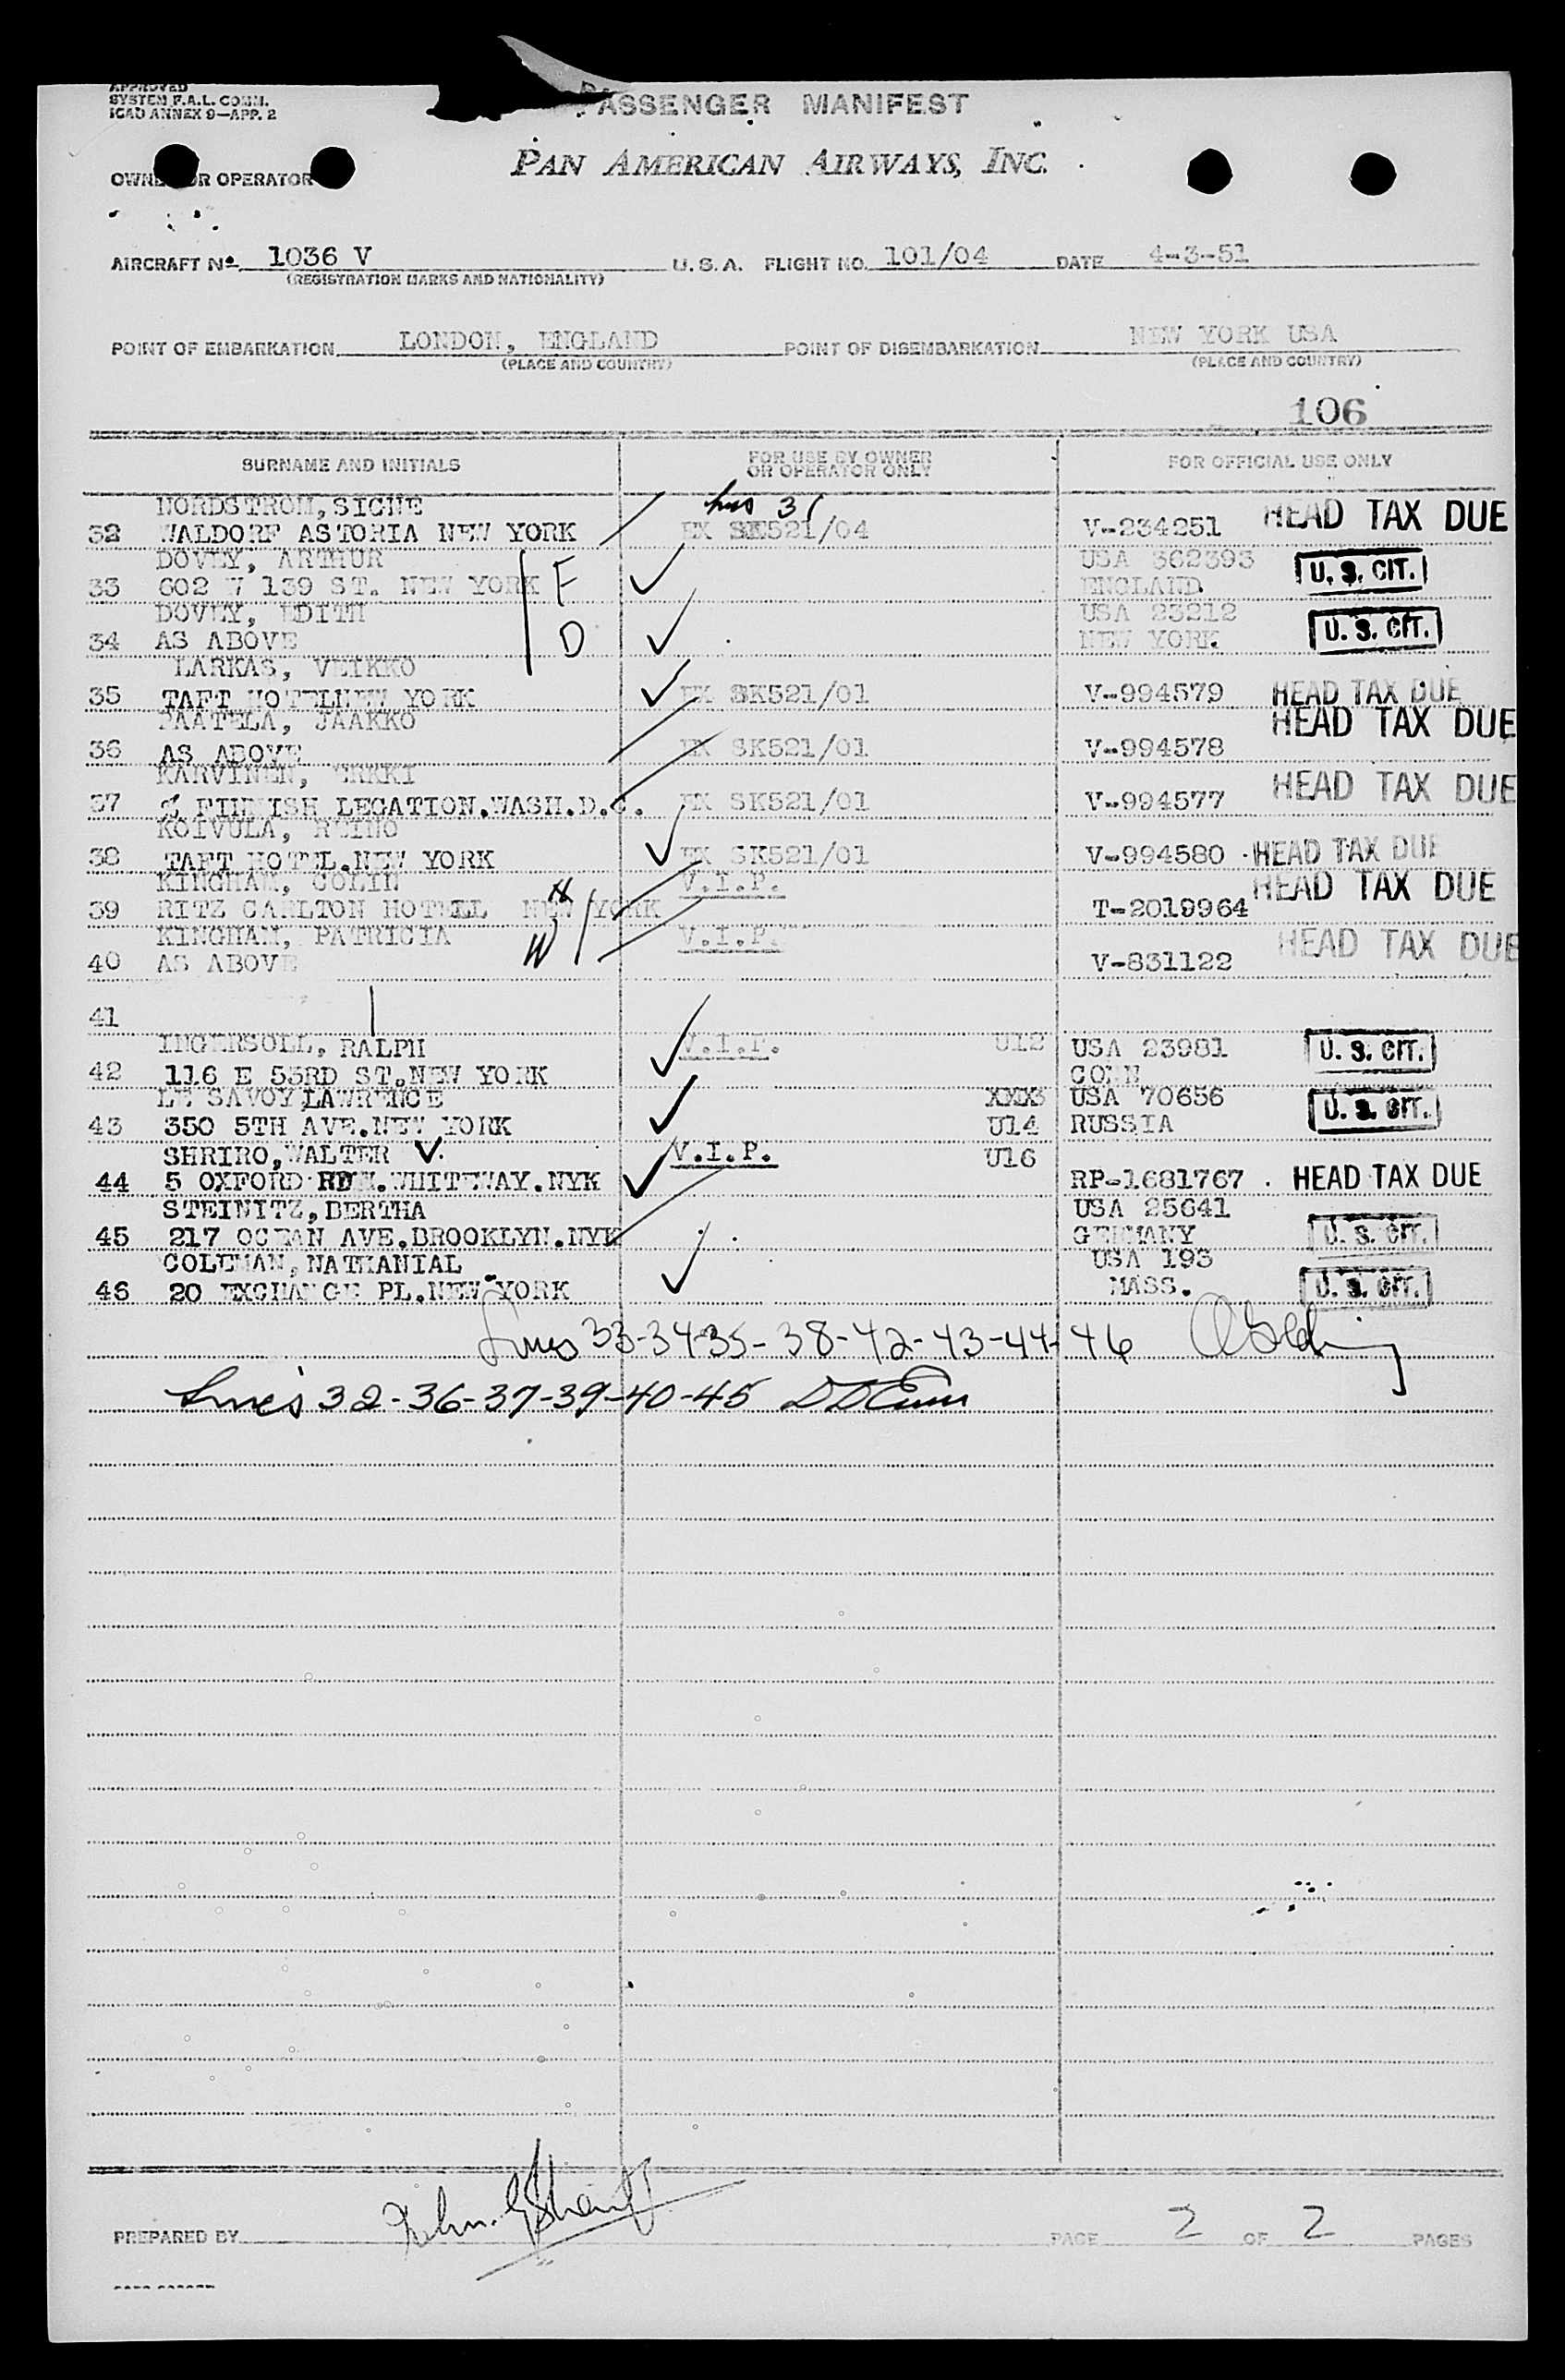 APPROVED
SYSTEM F.A.L. COMM.
ICAO ANNEX 9—APP. 2
PASSENGER MANIFEST
PAN AMERICAN AIRWAYS, INC.
OWNER OR OPERATOR
AIRCRAFT No. 1036 V U.S.A. FLIGHT NO. 101/04 DATE 4-3-51
(REGISTRATION MARKS AND NATIONALITY)
POINT OF EMBARKATION LONDON, ENGLAND POINT OF DISEMBARKATION NEW YORK USA
(PLACE AND COUNTRY) (PLACE AND COUNTRY)
106
SURNAME AND INITIALS FOR USE BY OWNER OR OPERATOR ONLY FOR OFFICIAL USE ONLY
NORDSTROM, SIGNE 31
32 WALDORF ASTORIA NEW YORK EX SK521/04 V-234251 HEAD TAX DUE
DOVEY, ARTHUR USA 362393
33 602 W 139 ST. NEW YORK F ENGLAND. U. S. CIT.
DOVEY, EDITH USA 23212
34 AS ABOVE D NEW YORK. U. S. CIT.
LARKAS, VEIKKO
35 TAFT HOTELNEW YORK EX SK521/01 V-994579 HEAD TAX DUE
PAATELA, JAAKKO HEAD TAX DUE
36 AS ABOVE EX SK521/01 V-994578
KARVINEN, ERKKI HEAD TAX DUE
37 % FINNISH LEGATION.WASH.D.C. EX SK521/01 V-994577
KOIVULA, REINO
38 TAFT HOTEL.NEW YORK EX SK521/01 V-994580 HEAD TAX DUE
KINGHAM, COLIN V.I.P. HEAD TAX DUE
39 RITZ CARLTON HOTELL NEW YORK H T-2019964
KINGHAM, PATRICIA V.I.P. HEAD TAX DUE
40 AS ABOVE W V-831122
41
INGERSOLL, RALPH V.I.P. U12 USA 23981 U. S. CIT.
42 116 E 53RD ST.NEW YORK CONN
LE SAVOY LAWRENCE XXX3 USA 70656 U. S. CIT.
43 350 5TH AVE.NEW YORK U14 RUSSIA
SHRIRO, WALTER V. V.I.P. U16
44 5 OXFORD RD N.WHITEWAY.NYK RP-1681767 HEAD TAX DUE
STEINITZ, BERTHA USA 25641
45 217 OCEAN AVE.BROOKLYN.NYK GERMANY U. S. CIT.
COLEMAN, NATHANIAL USA 193
46 20 EXCHANGE PL.NEW YORK MASS. U. S. CIT.
Lines 33-34-35-38-42-43-44-46
Line's 32-36-37-39-40-45
PREPARED BY PAGE 2 OF 2 PAGES